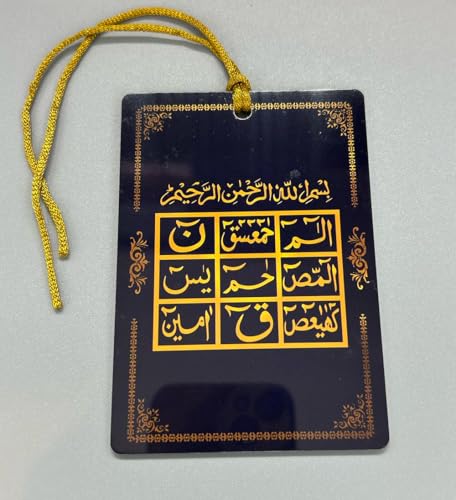 بسم الله الرحمن الرحيم
الم حمعسق ن
المص حم يس
كهيعص ق امين